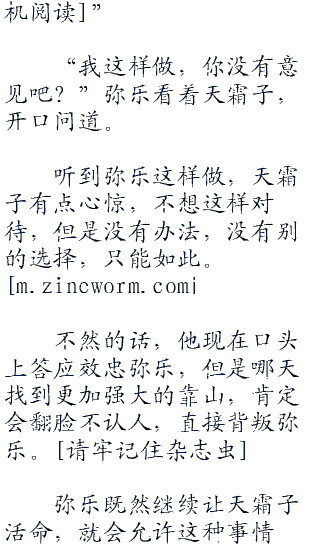 机阅读]”
“我这样做，你没有意
见吧？”弥乐看着天霜子，
开口问道。
听到弥乐这样做，天霜
子有点心惊，不想这样对
待，但是没有办法，没有别
的选择，只能如此。
[m.zincworm.com]
不然的话，他现在口头
上答应效忠弥乐，但是哪天
找到更加强大的靠山，肯定
会翻脸不认人，直接背叛弥
乐。[请牢记住杂志虫]
弥乐既然继续让天霜子
活命，就会允许这种事情